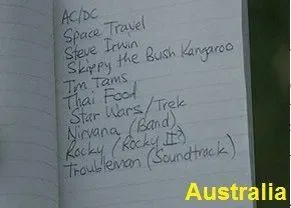 AC/DC
Space Travel
Steve Irwin
Skippy the Bush Kangaroo
Tim Tams
Thai Food
Star Wars/Trek
Nirvana (Band)
Rocky (Rocky II?)
Troubleman (Soundtrack)
Australia